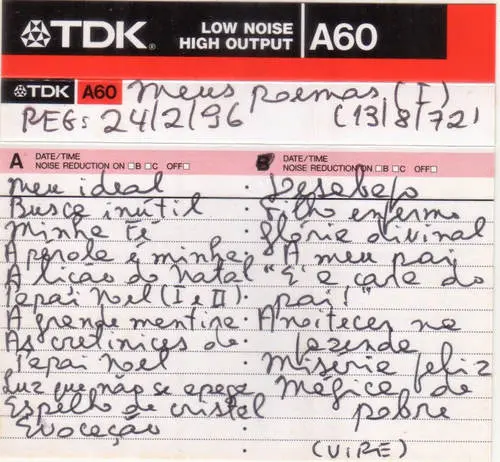 TDK
LOW NOISE
HIGH OUTPUT
A60
TDK A60 Meus Poemas (I)
REG: 24/2/96 (13/8/72)
A DATE/TIME
NOISE REDUCTION ON □B □C OFF□
Meu ideal
Busca inútil
Minha Fé
A pérola é minha
A lição do Natal
Papai Noel (I e II)
A grande mentira
As cretinices de
Papai Noel
Luz que não se apaga
Espelho de cristal
Evocação
B DATE/TIME
NOISE REDUCTION ON □B □C OFF□
Desabafo
Filho enfermo
Glória divinal
A meu pai
"E' a cara do
pai!"
Anoitecer na
fazenda
Miséria feliz
Mágica de
pobre
(VIRE)